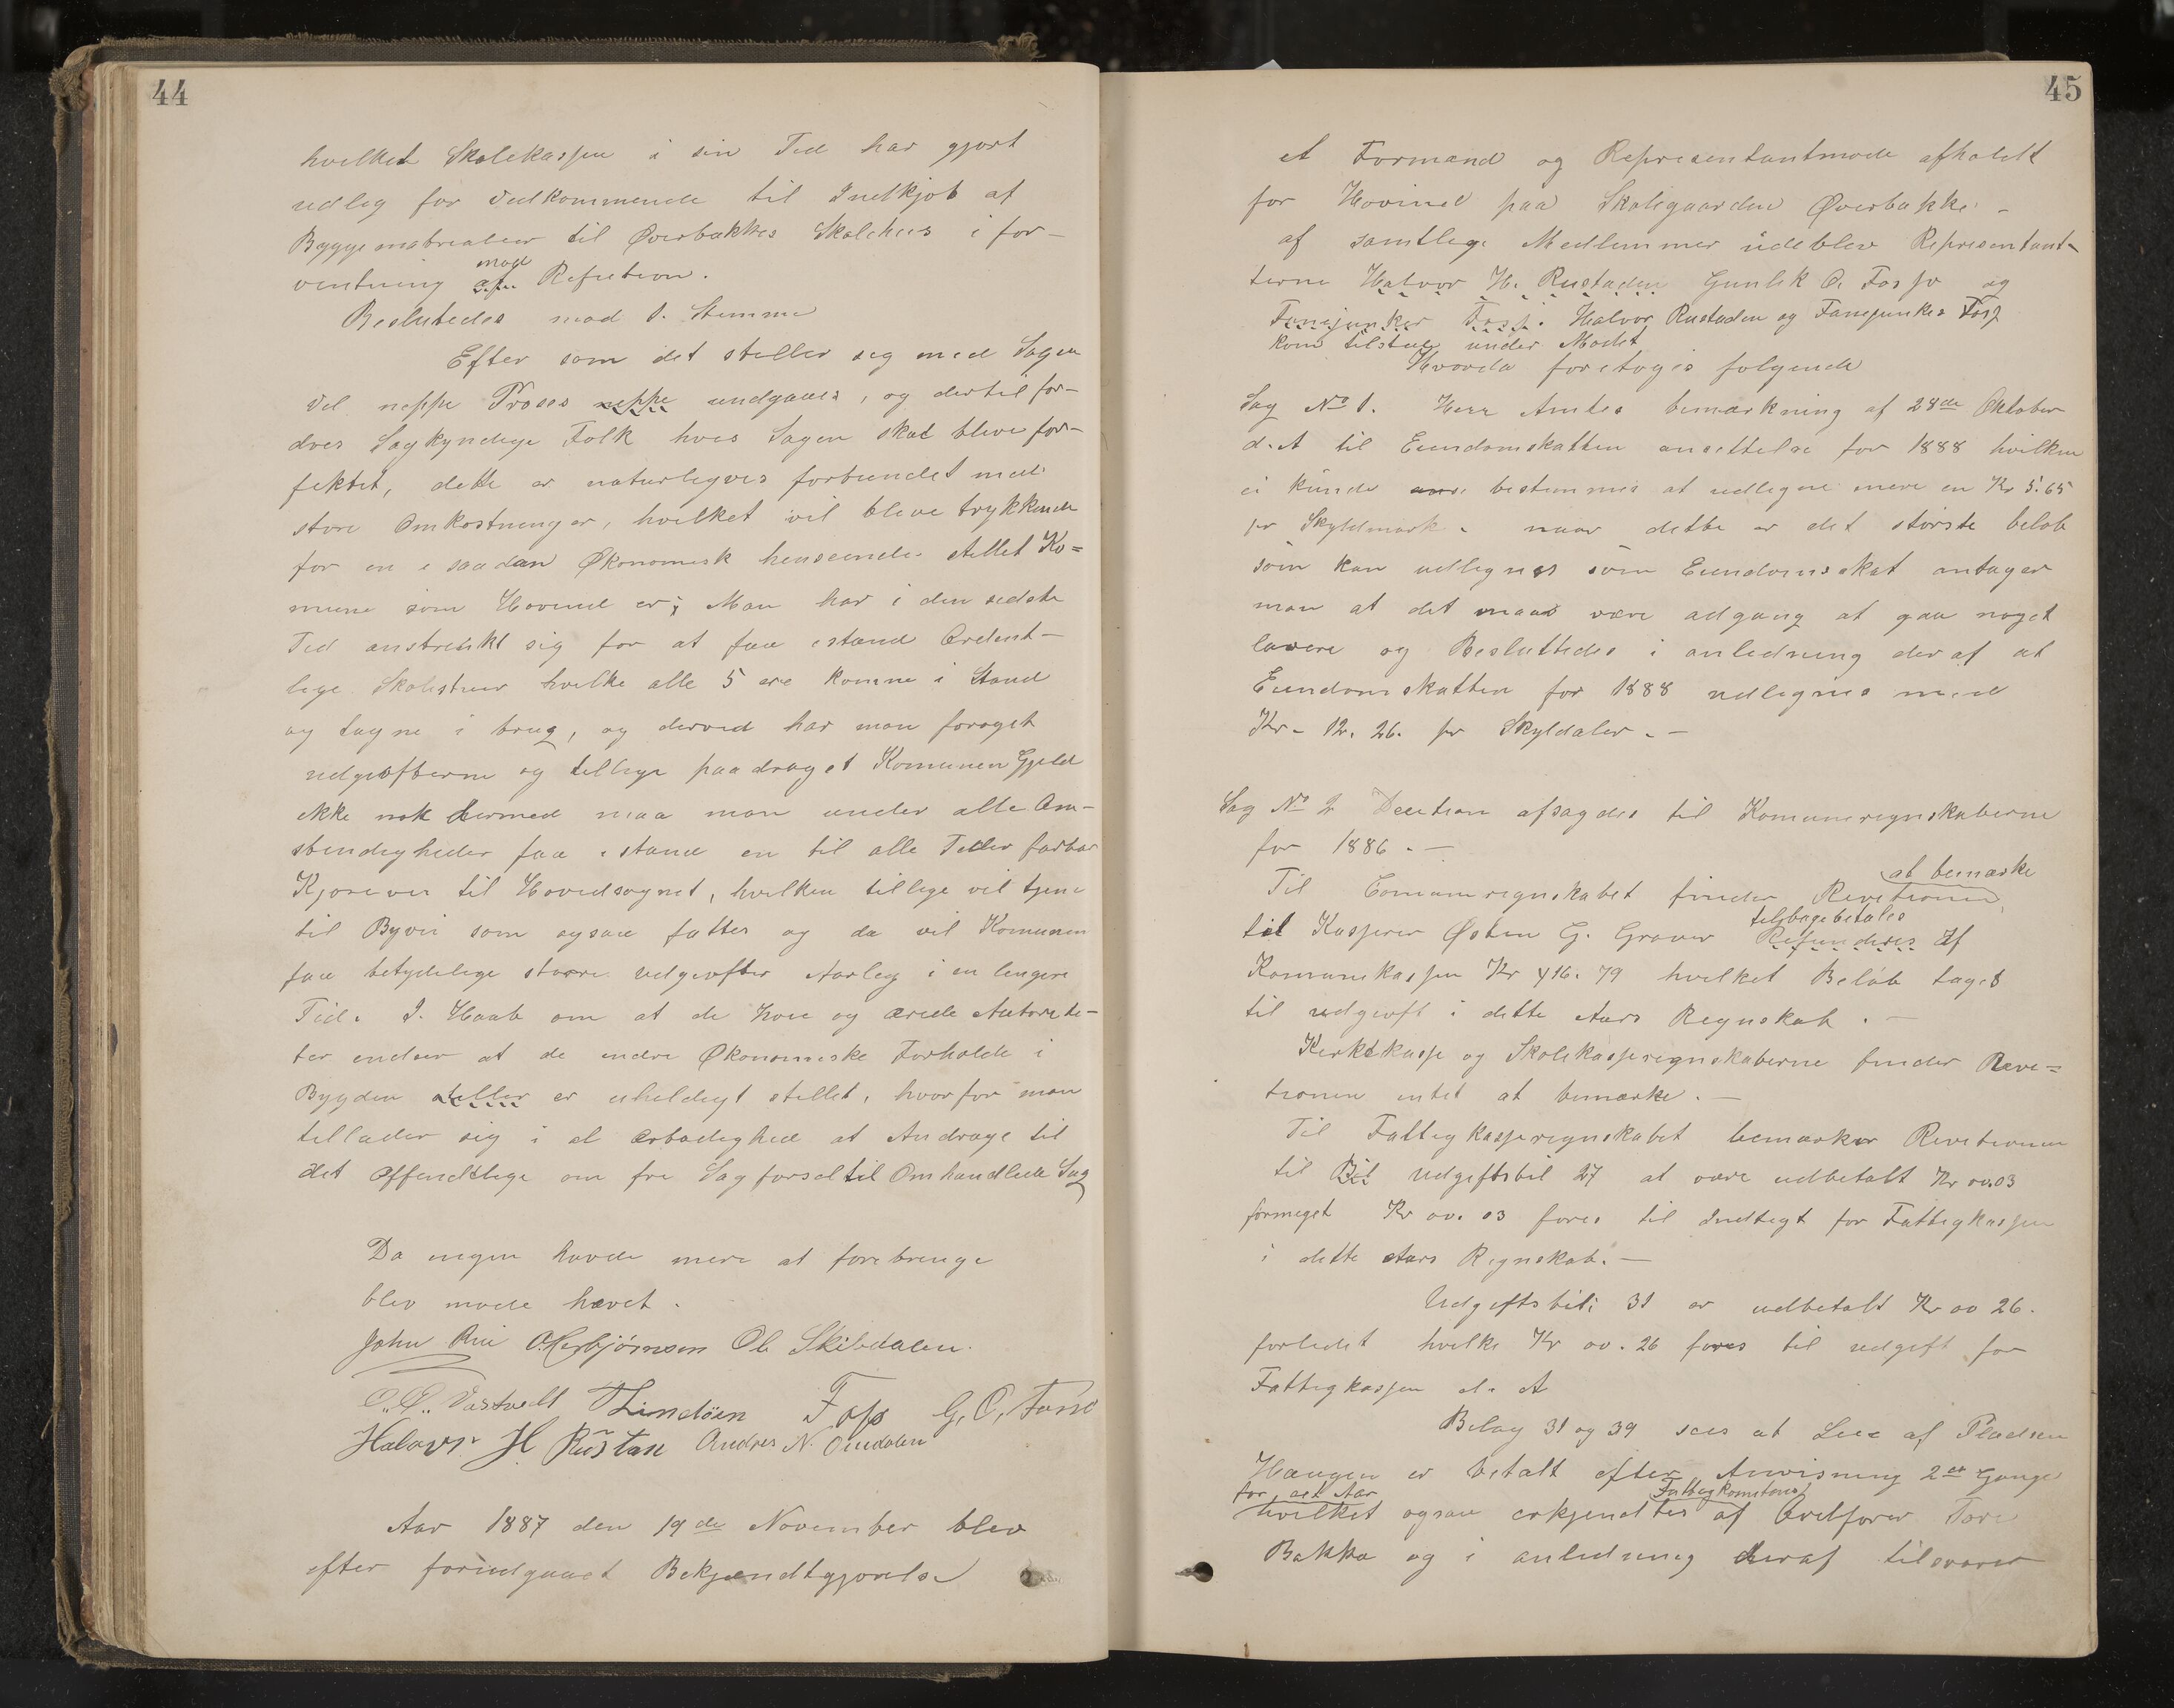 44
hvilket Skolekassen i sin Tid har gjort
udlæg for vedkommende til Indkjøb af
Byggematrialier til Øverbækkes Skolehus i for-
mod
ventning af Refution.
Beslutedes mod 1. Stemme
Efter som det stiller sig med Sagen
vil neppe Proses neppe undgaaes, og dertil for-
dres Sagkyndige Folk hvis Sagen skal blive for-
fektet, dette er naturligvis forbundet med
store Omkostninger, hvilket vil blive trykkende
for en i saadan Økonomisk henseende stillet Ko=
mune som Hovind er; Man har i den sidste
Tid anstrenkt sig for at faa istand Ordent-
lige Skolestuer hvilke alle 5 ere komne i Stand
og tagne i brug, og derved har man forøget
udgivterne og tillige paadraget Komunen Gjeld
ikke nok dermed maa man under alle Om-
stendigheder faa istand en til alle Tider farbar
Kjørevei til Hovedsognet, hvilken tillige vil tjene
til Byvei som ogsaa fattes og da vil Komunen
faa betydelige større udgivter Aarleg i en lengere
Tid. I Haab om at de høie og ærede Autorite-
ter indser at de indre Økonomiske Forholde i
Bygden stiller er uheldigt stillet, hvorfor man
tillader sig i al ærbødighed at Andrage til
det Offendtlige om fri Sagførsel til Omhandlede Sag
Da ingen havde mere at forebringe
blev møde hævet.
John Rui O. Herbjørnsen Ol. Skibdalen.
O. O. Vastvedt T Lindöen Foss G. O. Fosso
Halavr H Rustan Andres N. Omdalen
Aar 1887 den 19de November blev
efter forudgaaet Bekjendtgjørelse
45
et Formand og Representantmøde afholdt
for Hovind paa Skolegaarden Øverbøkke -
af samtlige Medlemmer udeblev Representant-
terne Halvor H. Rustaden Gunlek O. Fosso og
Fanejunker Foss. Halvor Rustaden og Fanejunker Foss
kom tilstede under Mødet
Hvorda foretoges følgende
Sag No 1. Herr Amtes bemærkning af 28de Oktober
d. A til Eiendomskatten ansettelse for 1888 hvilken
ei kunde bestemmes at udlegne mere en Kr 5.65
pr Skyldmark. naar dette er det største beløb
som kan udlegnes som Eiendomsskat antager
man at det maa være adgang at gaa noget
lavere og Besluttedes i anledning deraf at
Eiendomskatten for 1888 udlignes med
Kr. 12. 26. pr Skyldaler. -
Sag No 2 Decition afsagdes til Komuneregnskaberne
for 1886. -
at bemærke
Til Comuneregnskabet finder Revitionen
tilbagebetales
til Kasserer Østen G. Graver Refunderes af
Komunekassen Kr 416. 79 hvilket Beløb tages
til udgivt i dette Aars Regnskab. -
Kirkekasse og Skolekasseregnskaberne finder Reve=
tionen intet at bemærke. -
Til Fattigkasseregnskabet bemærker Revetionen
til Bil Udgiftsbil 27 at være udbetalt Kr 00.03
formeget Kr 00. 03 føres til Indtegt for Fattigkassen
i dette Aars Regnskab. -
Udgiftsbil: 31 er udbetalt Kr 00 26.
forledet hvilke Kr 00. 26 føres til udgift for
Fattigkassen d. A
Belag 31 og 39 sees at Leie af Pladsen
Haugen er betalt efter Anvisning 2de Gange
for et Aar Fattigkomitions
hvilket ogsaa erkjendtes af Ordfører Tore
Bakka og i anledning deraf tilsvarer